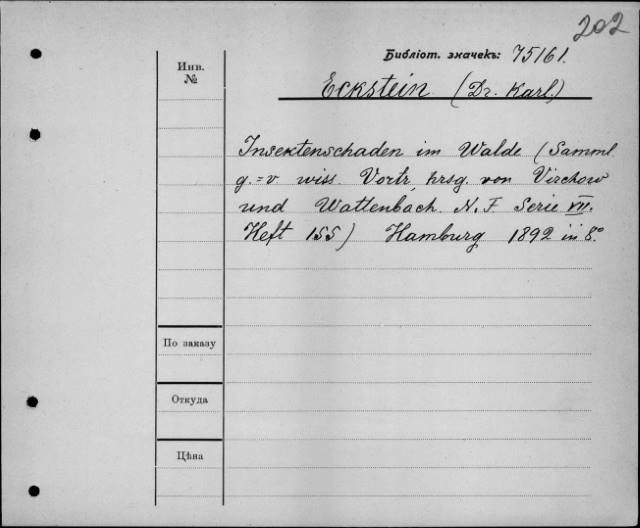 202
Инв.
№
Библіот. значекъ: 75161.
Eckstein (Dr. Karl)
Insektenschaden im Walde (Samml.
g.=v wiss. Vortr, hrsg. von Virchow
und Wattenbach. N. F. Serie VII.
Heft 155) Hamburg 1892 in 8º
По заказу
Откуда
Цѣна